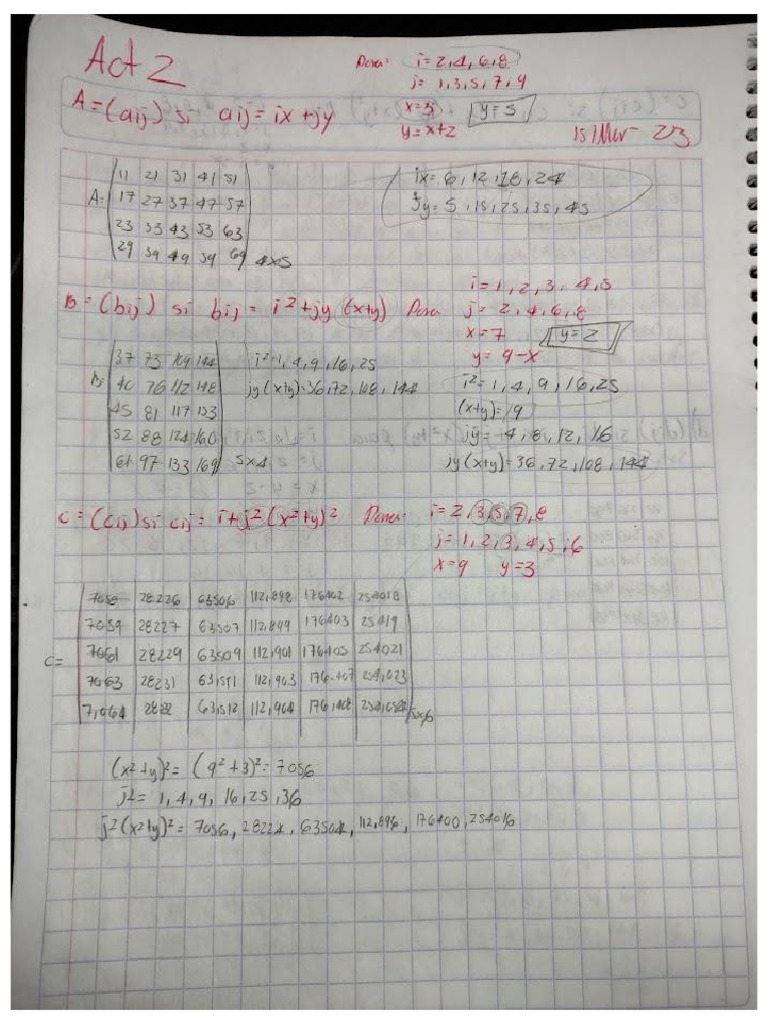 Act 2
Para: i = 2, 4, 6, 8
j = 1, 3, 5, 7, 9
A = (aij) si aij = ix + jy
x = 3 y = 5
y = x+2
15/Mar 23
A=
11 21 31 41 51
17 27 37 47 57
23 33 43 53 63
29 39 49 59 69 4x5
ix = 6, 12, 18, 24
jy = 5, 15, 25, 35, 45
B = (bij) si bij = i² + jy (x+y) Para
i = 1, 2, 3, 4, 5
j = 2, 4, 6, 8
x = 7 y = 2
y = 9-x
B=
37 73 109 144
40 76 112 148
45 81 117 153
52 88 124 160
61 97 133 169 5x4
i² = 1, 4, 9, 16, 25
jy (x+y) = 36, 72, 108, 144
i² = 1, 4, 9, 16, 25
(x+y) = 9
jy = 4, 8, 12, 16
jy (x+y) = 36, 72, 108, 144
C = (cij) si cij = i + j² (x²+y)² Para:
i = 2, 3, 5, 7, 8
j = 1, 2, 3, 4, 5, 6
x = 9 y = 3
C=
7058 28226 63506 112,898 176402 254018
7059 28227 63507 112,899 176403 25419
7061 28229 63509 112,901 176405 254021
7063 28231 63,511 112,903 176,407 254,023
7,064 63,512 112,904 176,408 5x6
(x²+y)² = (9²+3)² = 7056
j² = 1, 4, 9, 16, 25, 36
j² (x²+y)² = 7056, 28224, 63504, 112,896, 176400, 254016